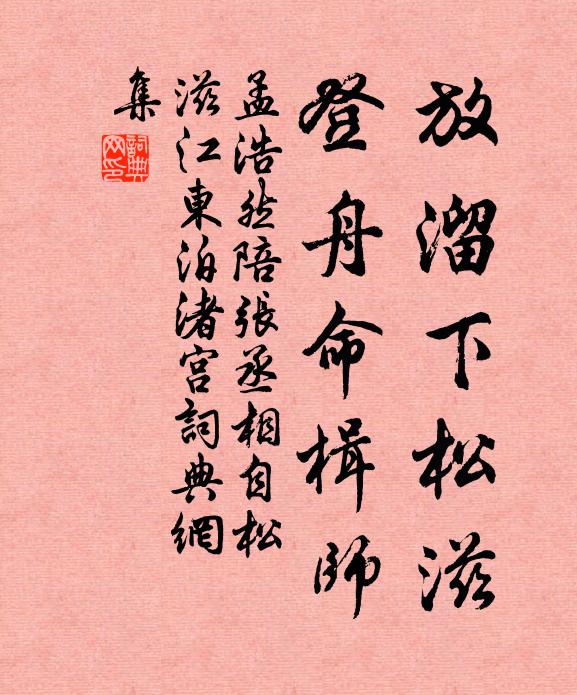 放溜下松滋
登舟命楫師
孟浩然陪張丞相自松
滋江東泊渚宮詞典網
集
詞典
网印